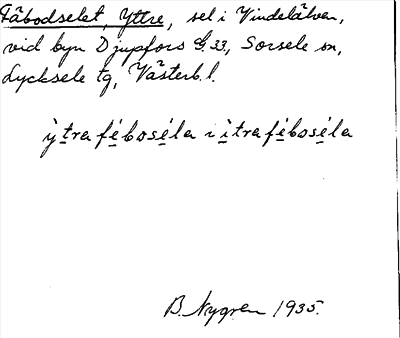 Fäbodselet, Yttre, sel i Vindelälven,
vid byn Djupfors G.33, Sorsele sn,
Lycksele tg, Västerb. l.
ỳtraféboséla i ìtraféboséla
B. Nygren 1935.